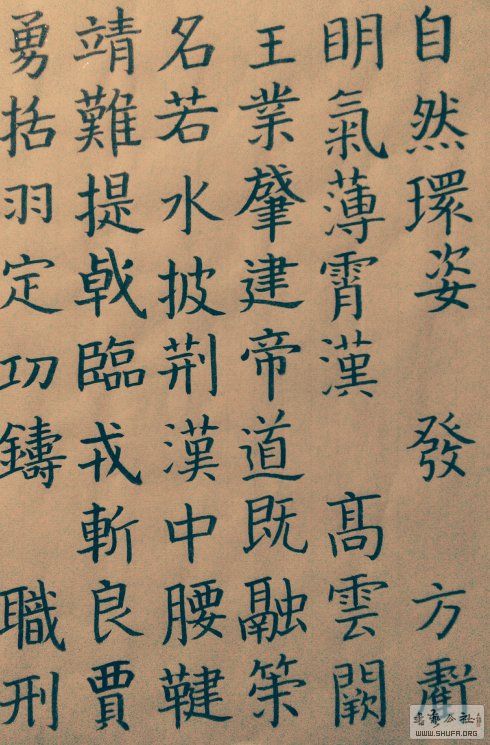 自然環姿 發 方
明氣薄霄漢 高雲闕
王業肇建帝道既融策
名若水披荆漢中腰鞬
靖難提戟臨戎斬良賈
勇括羽定功鑄 職刑
WWW.SHUFA.ORG